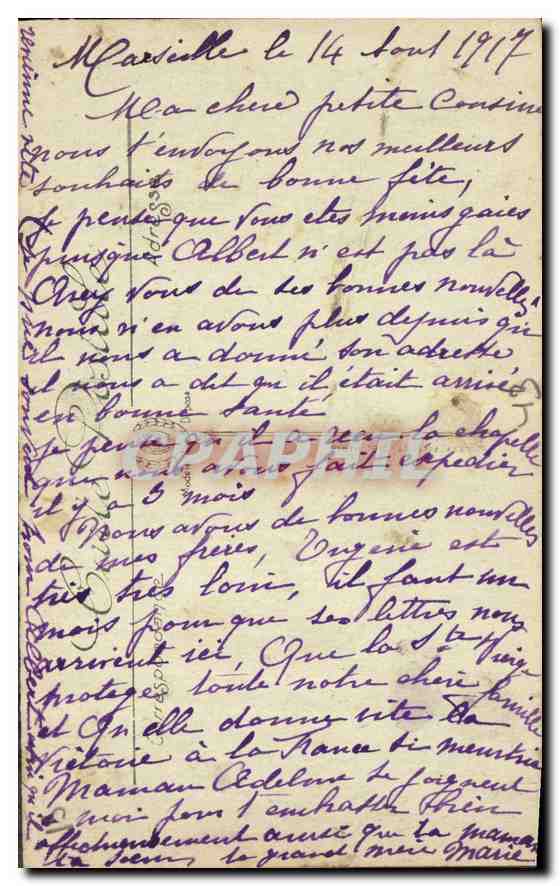 Marseille le 14 Aout 1917
Ma chere petite Cousine
nous t'envoyons nos meilleurs
souhaits de bonne fête,
Je pense que vous etes moins gaies
puisque Albert n'est pas là
Avez vous de ses bonnes nouvelles
nous n'en avons plus depuis qu'
il nous a donné son adresse
il nous a dit qu'il était arrivé
en bonne santé
je pense qu'il a reçu la chapelle
que nous avons fait expedier
il y a 3 mois
Nous avons de bonnes nouvelles
de mes frères, Eugene est
très très loin, il faut un
mois pour que ses lettres nous
arrivent ici, Que la Ste Vierge
protege toute notre chère famille
et qu'elle donne vite la
Victoire à la France si meurtrie
Maman Adeline se joignent
a moi pour t'embrasser bien
affectueusement ainsi que ta maman
ta soeur, ta grand mère Marie
Carte Postale
Correspondance
Adresse
CPAPHIL